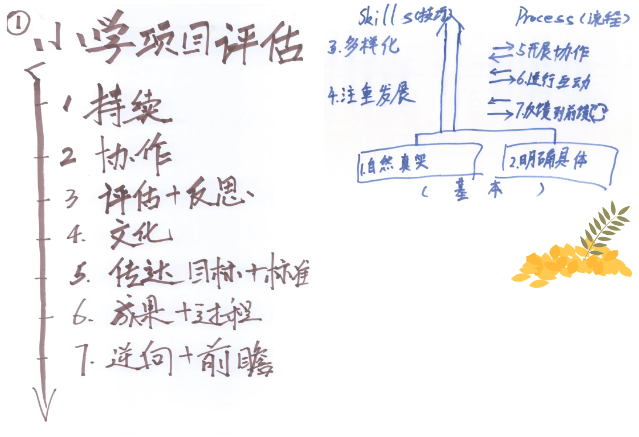 ① 小学项目评估
1 持续
2 协作
3 评估+反思
4. 文化
5. 传达 目标+标准
6. 成果+过程
7. 逆向+前瞻
Skills(技巧)
3.多样化
4.注重发展
Process(流程)
5开展协作
6.进行互动
7.反馈到前馈
1.自然真实
2.明确具体
(基本)